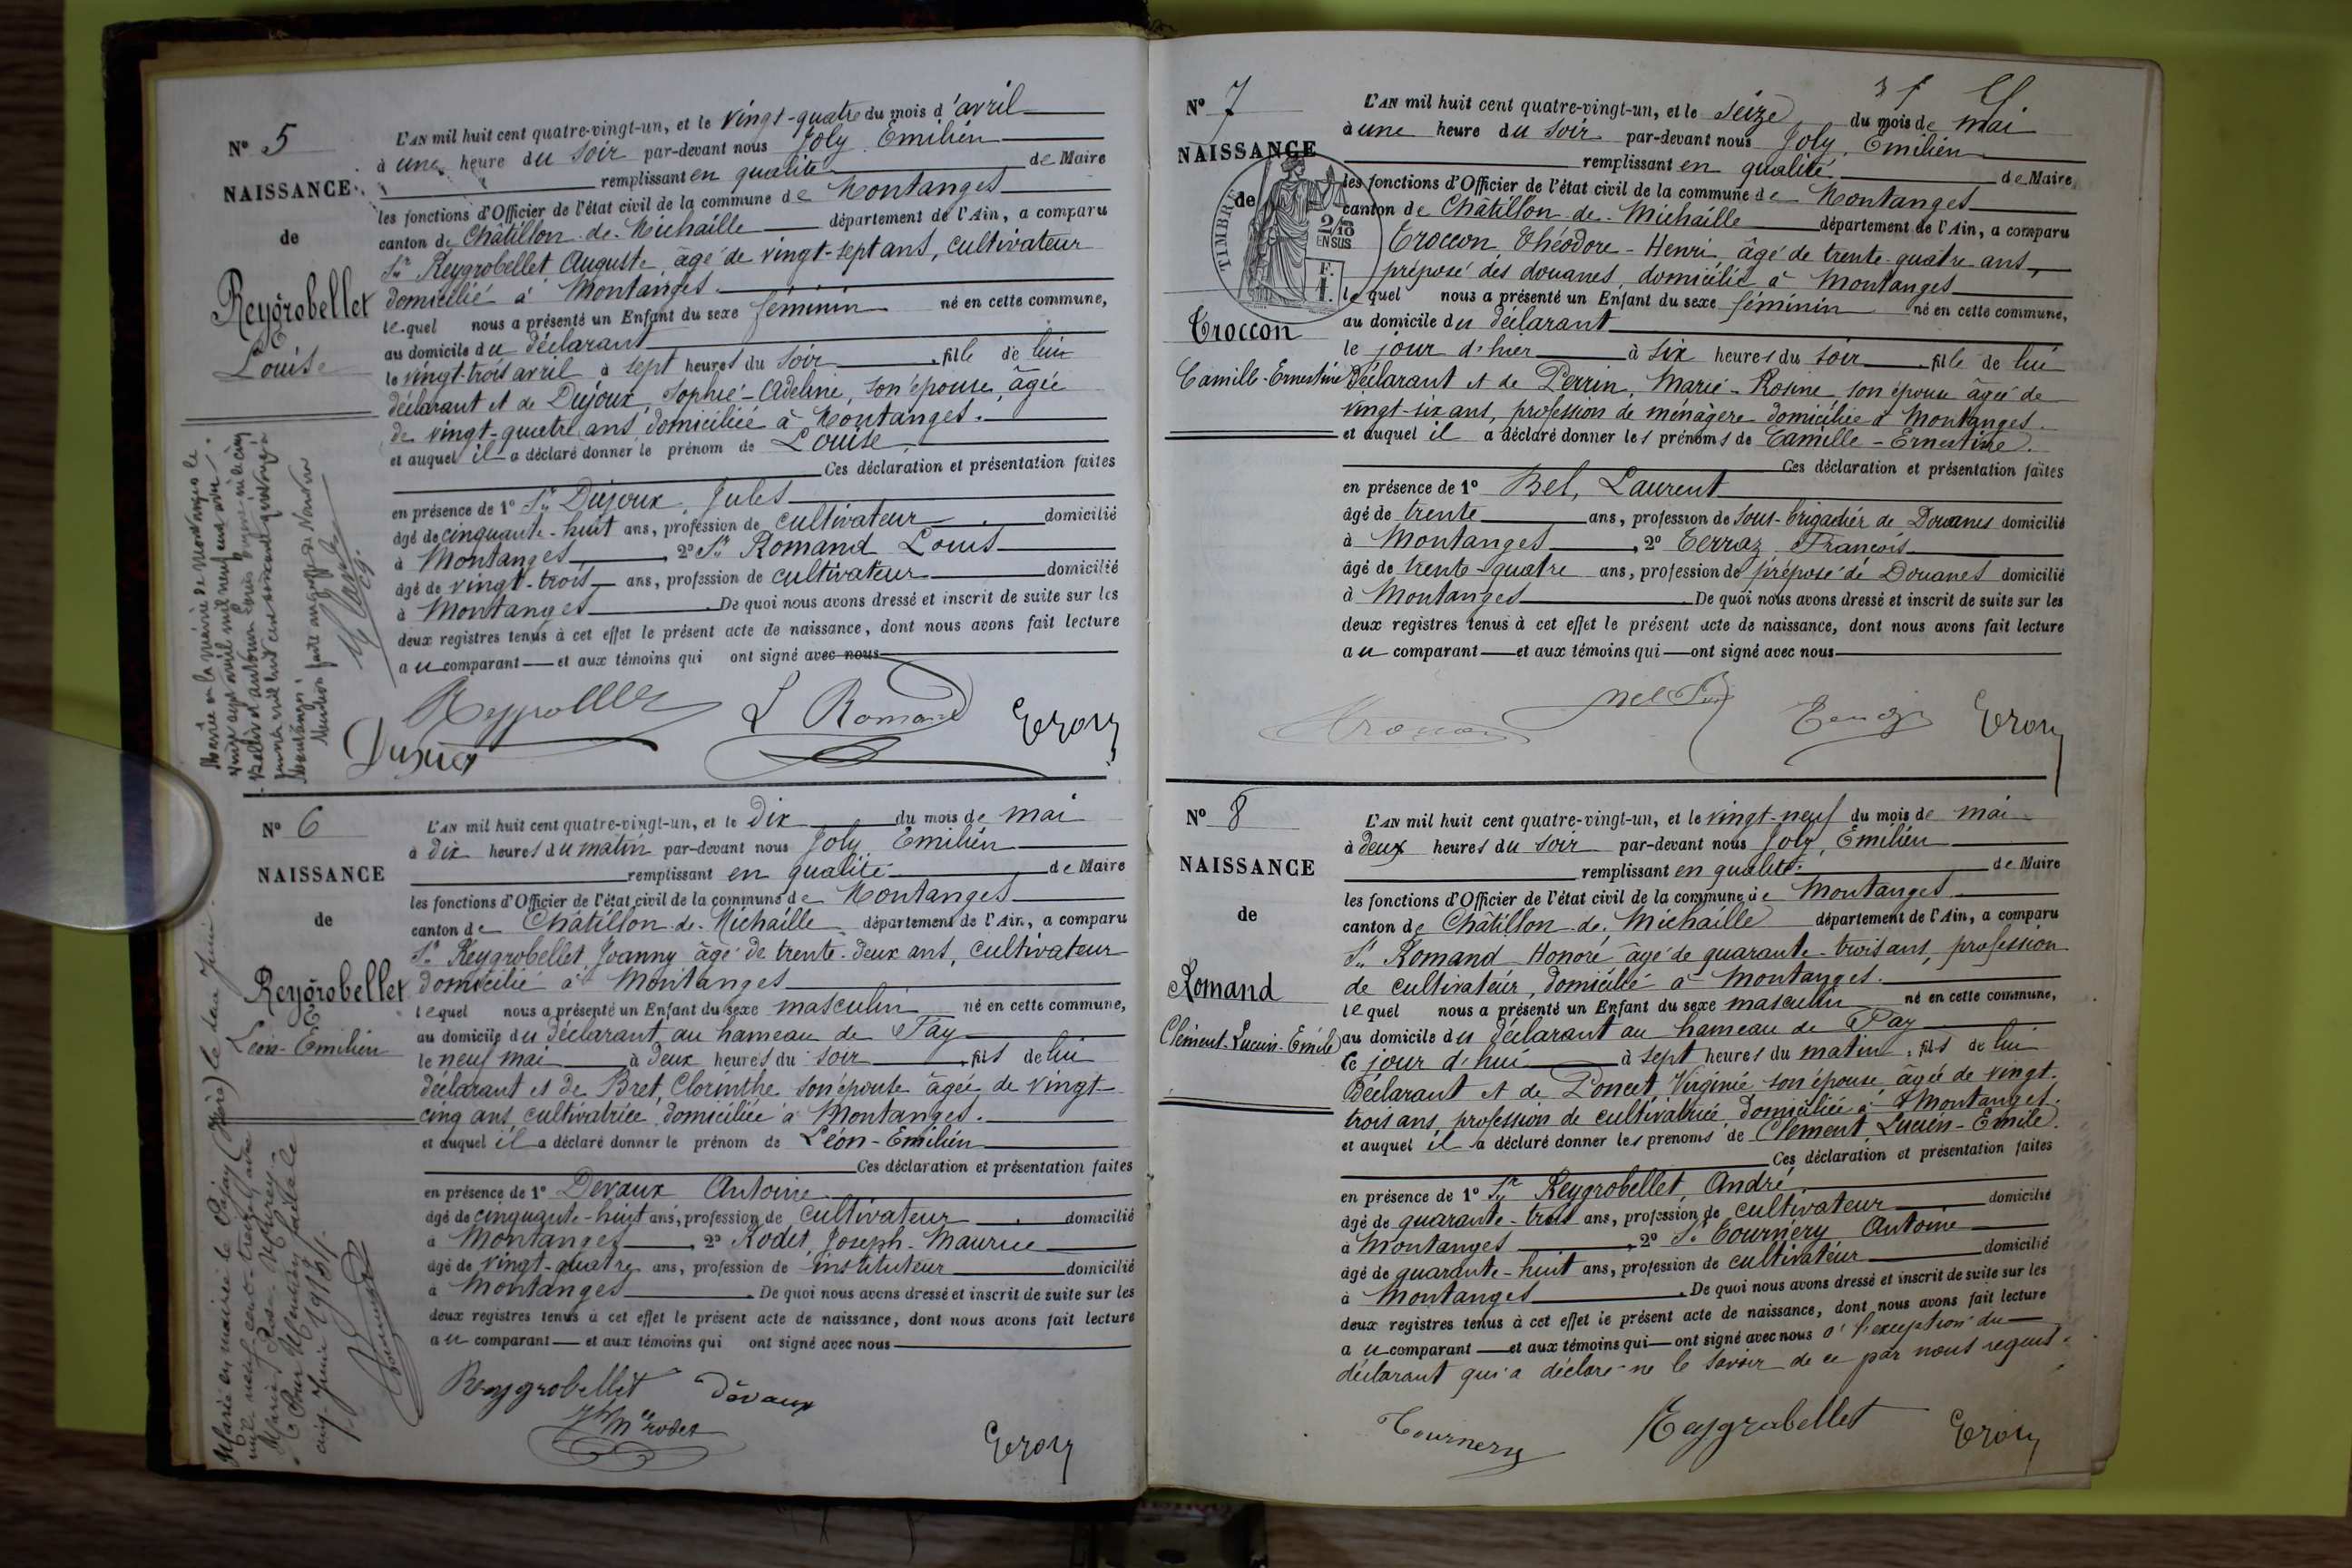 N° 5
NAISSANCE
de
Reygrobellet
Louise
L'AN mil huit cent quatre-vingt-un, et le vingt-quatre du mois d'avril
à une heure du soir par-devant nous Joly Emilien
remplissant en qualité de Maire
les fonctions d'Officier de l'état civil de la commune de Montanges
canton de Châtillon-de-Michaille département de l'Ain, a comparu
Sr Reygrobellet Auguste, âgé de vingt-sept ans, cultivateur
domicilié à Montanges.
lequel nous a présenté un Enfant du sexe féminin né en cette commune,
au domicile du déclarant
le vingt-trois avril à sept heures du soir, fille de lui
déclarant et de Dujoux, Sophie-Adeline, son épouse, âgée
de vingt-quatre ans, domiciliée à Montanges.
et auquel il a déclaré donner le prénom de Louise
Ces déclaration et présentation faites
en présence de 1° Sr Dujoux, Jules
âgé de cinquante-huit ans, profession de cultivateur domicilié
à Montanges, 2° Sr Romand Louis
âgé de vingt-trois ans, profession de cultivateur domicilié
à Montanges. De quoi nous avons dressé et inscrit de suite sur les
deux registres tenus à cet effet le présent acte de naissance, dont nous avons fait lecture
au comparant et aux témoins qui ont signé avec nous
L Romand
N° 6
NAISSANCE
de
Reygrobellet
Léon-Emilien
L'AN mil huit cent quatre-vingt-un, et le dix du mois de mai
à dix heures du matin par-devant nous Joly Emilien
remplissant en qualité de Maire
les fonctions d'Officier de l'état civil de la commune de Montanges
canton de Châtillon-de-Michaille département de l'Ain, a comparu
Sr Reygrobellet Joanny âgé de trente-deux ans, cultivateur
domicilié à Montanges
lequel nous a présenté un Enfant du sexe masculin né en cette commune,
au domicile du déclarant au hameau de Pay
le neuf mai à deux heures du soir, fils de lui
déclarant et de Bret, Clorinthe son épouse âgée de vingt-
cinq ans, cultivatrice, domiciliée à Montanges.
et auquel il a déclaré donner le prénom de Léon-Emilien
Ces déclaration et présentation faites
en présence de 1° Devaux Antoine
âgé de cinquante-huit ans, profession de cultivateur domicilié
à Montanges, 2° Rodet, Joseph-Maurice
âgé de vingt-quatre ans, profession de instituteur domicilié
à Montanges. De quoi nous avons dressé et inscrit de suite sur les
deux registres tenus à cet effet le présent acte de naissance, dont nous avons fait lecture
au comparant et aux témoins qui ont signé avec nous
Reygrobellet Devaux
N° 7
NAISSANCE
de
TIMBRE
2/10
EN SUS
F.
1.
Troccon
Camille-Ernestine
L'AN mil huit cent quatre-vingt-un, et le seize du mois de mai
à une heure du soir par-devant nous Joly, Emilien
remplissant en qualité de Maire
les fonctions d'Officier de l'état civil de la commune de Montanges
canton de Châtillon-de-Michaille département de l'Ain, a comparu
Troccon, Théodore-Henri âgé de trente-quatre ans,
préposé des douanes, domicilié à Montanges
lequel nous a présenté un Enfant du sexe féminin né en cette commune,
au domicile du déclarant
le jour d'hier à six heures du soir, fille de lui
déclarant et de Perrin, Marie-Rosine son épouse âgée de
vingt-six ans, profession de ménagère domiciliée à Montanges.
et auquel il a déclaré donner les prénoms de Camille-Ernestine.
Ces déclaration et présentation faites
en présence de 1° Bel, Laurent
âgé de trente ans, profession de sous-brigadier de Douanes domicilié
à Montanges, 2° Terraz François
âgé de trente-quatre ans, profession de préposé de Douanes domicilié
à Montanges. De quoi nous avons dressé et inscrit de suite sur les
deux registres tenus à cet effet le présent acte de naissance, dont nous avons fait lecture
au comparant et aux témoins qui ont signé avec nous
N° 8
NAISSANCE
de
Romand
Clément-Lucien-Emile
L'AN mil huit cent quatre-vingt-un, et le vingt-neuf du mois de mai
à deux heures du soir par-devant nous Joly, Emilien
remplissant en qualité de Maire
les fonctions d'Officier de l'état civil de la commune de Montanges
canton de Châtillon-de-Michaille département de l'Ain, a comparu
Sr Romand Honoré âgé de quarante-trois ans, profession
de cultivateur, domicilié à Montanges.
lequel nous a présenté un Enfant du sexe masculin né en cette commune,
au domicile du déclarant au hameau de Pay
le jour d'hui à sept heures du matin, fils de lui
déclarant et de Poncet Virginie son épouse âgée de vingt-
trois ans, profession de cultivatrice, domiciliée à Montanges.
et auquel il a déclaré donner les prénoms de Clément, Lucien-Emile.
Ces déclaration et présentation faites
en présence de 1° Sr Reygrobellet, André
âgé de quarante-trois ans, profession de cultivateur domicilié
à Montanges, 2° Sr Tournery Antoine
âgé de quarante-huit ans, profession de cultivateur domicilié
à Montanges. De quoi nous avons dressé et inscrit de suite sur les
deux registres tenus à cet effet le présent acte de naissance, dont nous avons fait lecture
au comparant et aux témoins qui ont signé avec nous à l'exception du
déclarant qui a déclaré ne le savoir de ce par nous requis.
Tournery Reygrabellet